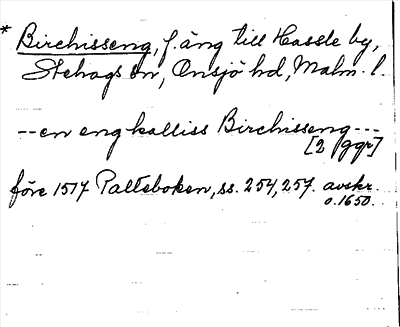 * Birchisseng, f. äng till Hassle by,
Stehags sn, Onsjö hd, Malm. l.
--en eng kalliss Birchisseng---
[2 ggr]
före 1517 Palteboken, ss. 254, 257. avskr.
o. 1650.